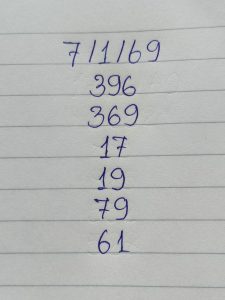 7/1/69
396
369
17
19
79
61